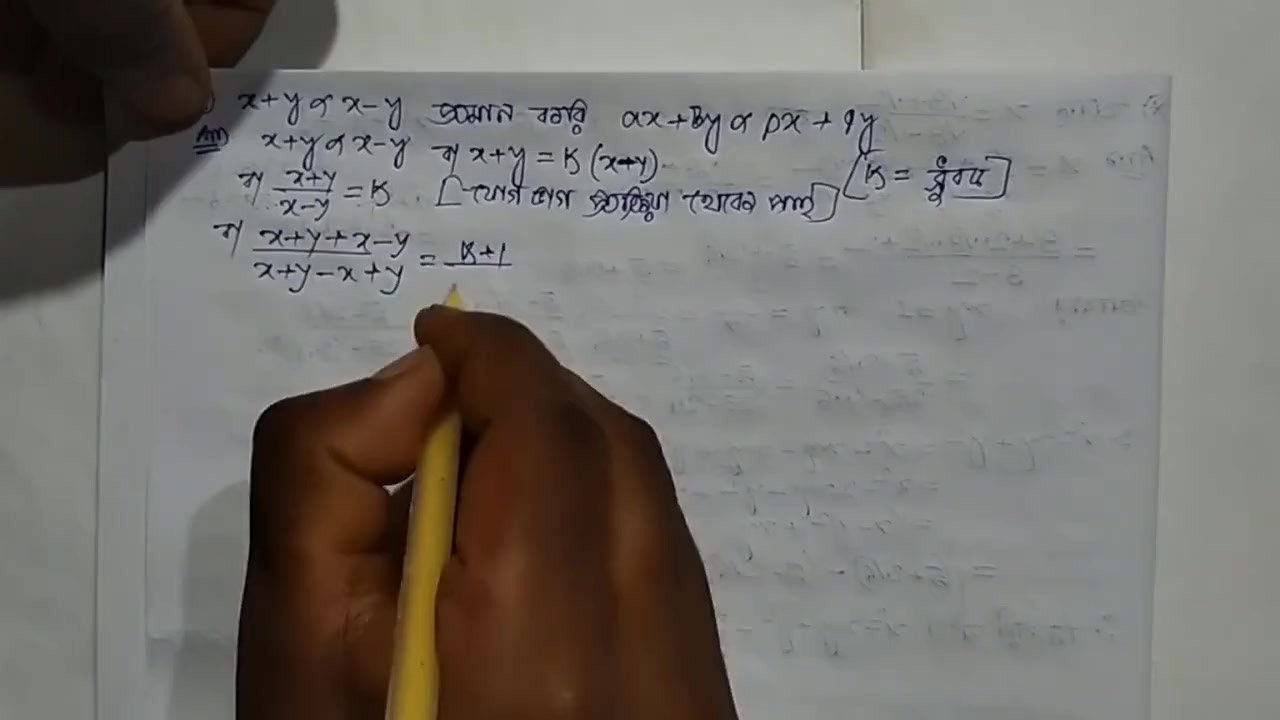 x+y ∝ x-y প্রমান করি ax+By ∝ px+qy
Ans x+y ∝ x-y বা x+y = K (x-y) [K = ধ্রুবক]
বা x+y/x-y = K [যোগ ভাগ প্রক্রিয়া থেকে পাই]
বা x+y+x-y/x+y-x+y = K+1